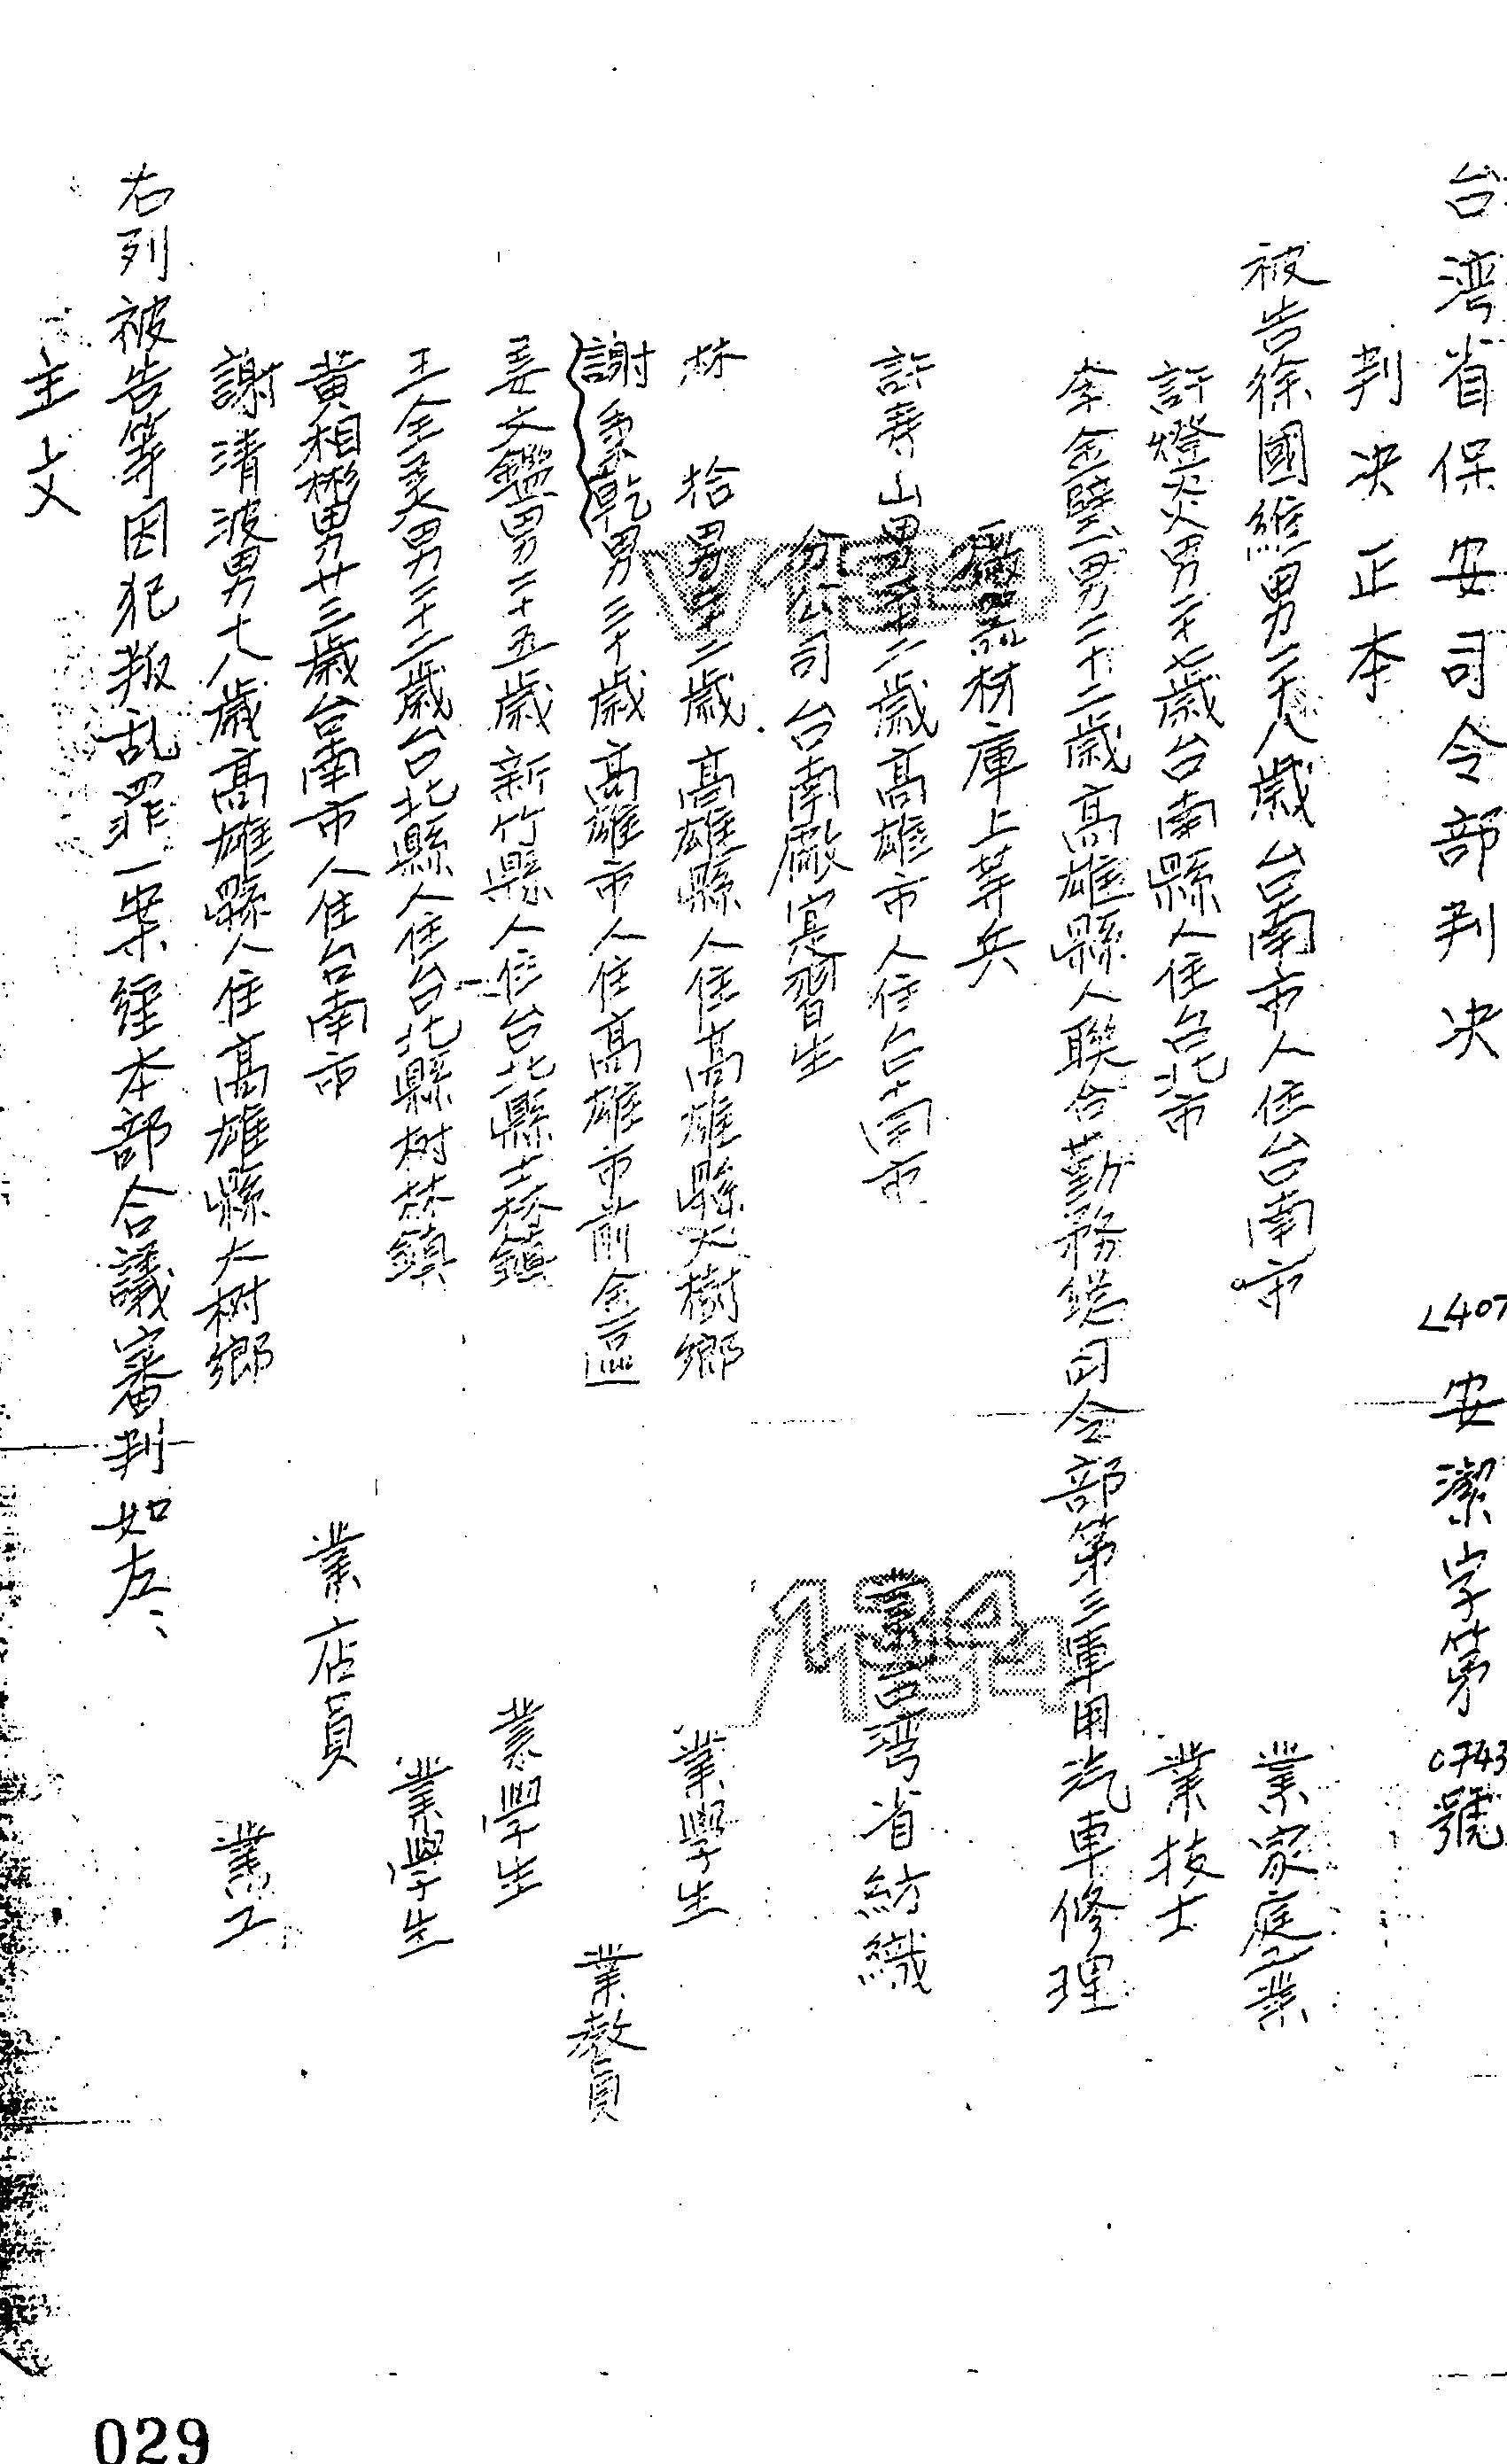 台湾省保安司令部判决 (40)安潔字第0743號
判决正本
被告徐國維男二十八歲台南市人住台南市 業家庭工業
許燈炎男二十七歲台南縣人住台北市 業技士
李金璧男二十二歲高雄縣人聯合勤務總司令部第三軍用汽車修理
廠器材庫上等兵
許壽山男二十二歲高雄市人住台南市 業台湾省紡織
分公司台南廠寔習生
林 拾男二十二歲高雄縣人住高雄縣大樹鄉 業學生
謝象乾男三十歲高雄市人住高雄市前金區 業教員
姜文鑑男二十五歲新竹縣人住台北縣士林鎮 業學生
王全美男二十二歲台北縣人住台北縣树林鎮 業學生
黄相彬男廿三歲台南市人住台南市 業店員
謝清波男十八歲高雄縣人住高雄縣大树鄉 業工
右列被告等因犯叛乱罪一案經本部合議審判如左、
主文
029